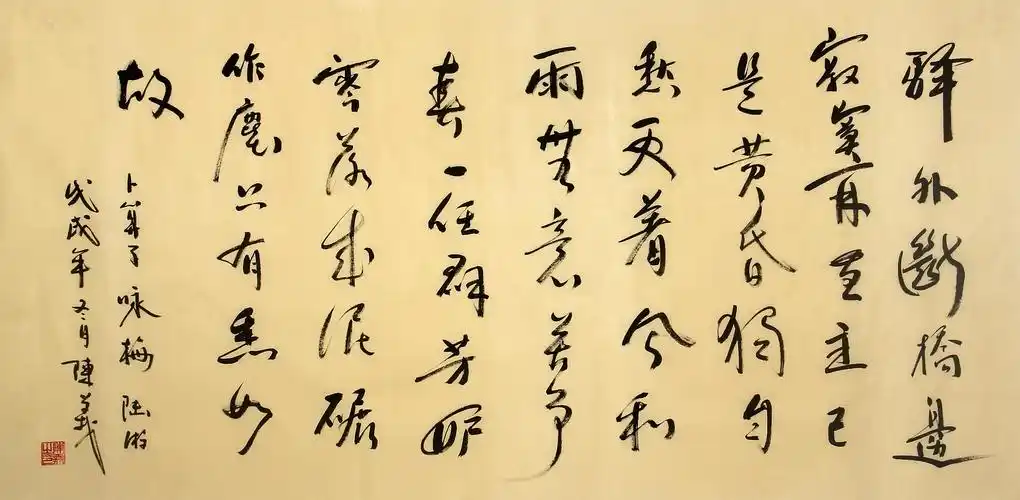 驛外斷橋邊
寂寞開無主已
是黄昏獨自
愁更着風和
雨無意苦爭
春一任群芳妒
零落成泥碾
作塵只有香如
故
卜算子 咏梅 陸游
戊戌年冬月陳義